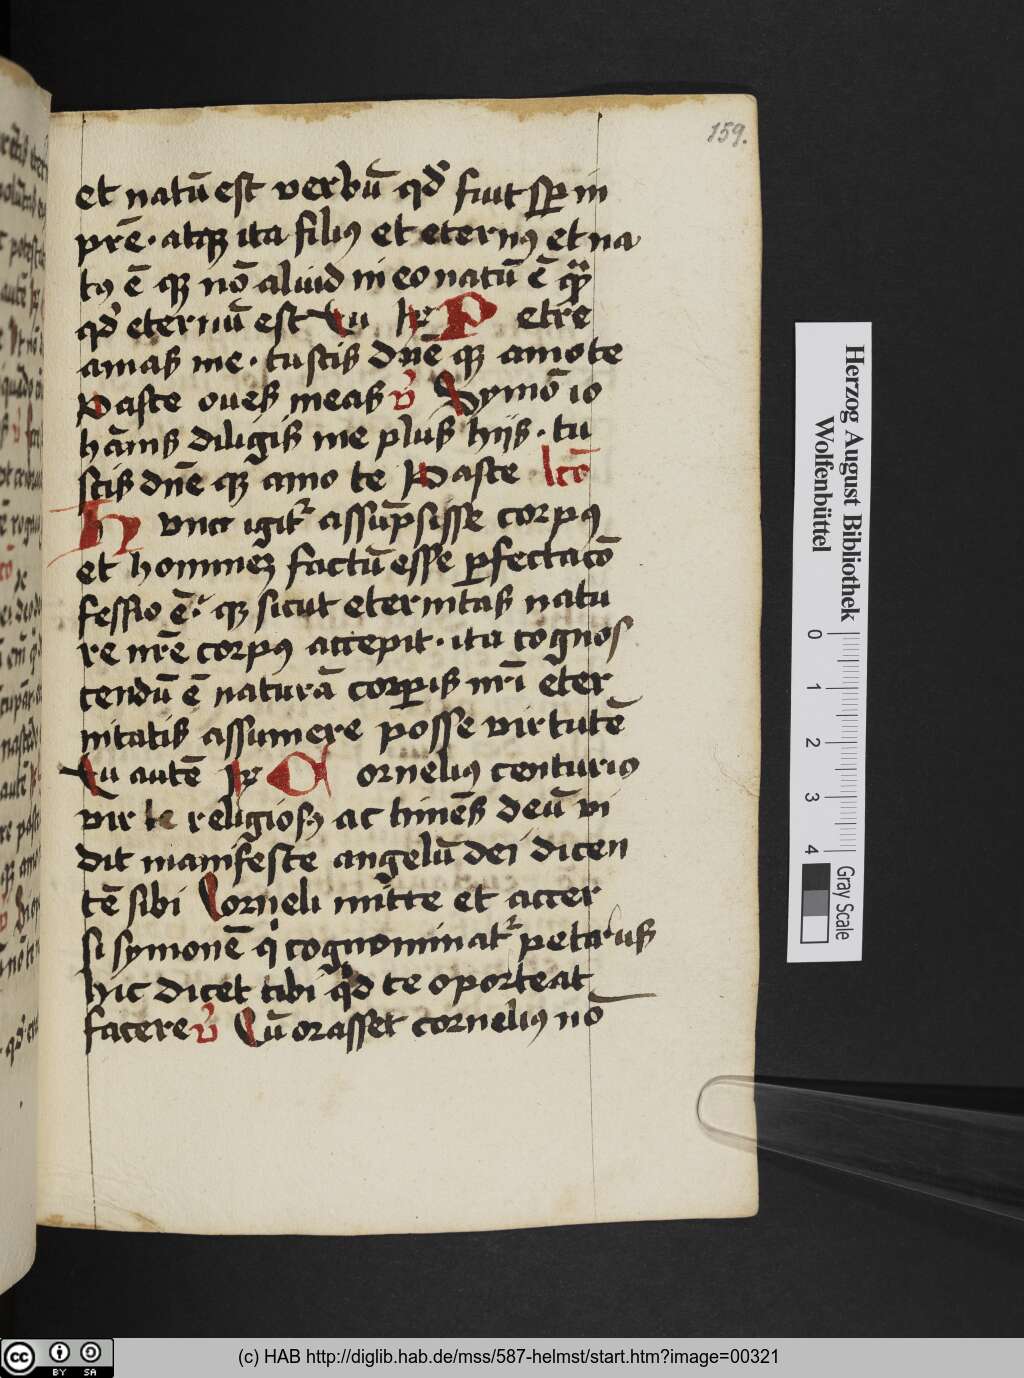 159.
et natū est verbū qd̕ fuit sꝑ in
prē · atqꝫ ita filiꝰ et eternꝰ et na
tꝰ ē qꝫ nō aliud in eo natū ē
qd̕ eternū est Tu P etre
amas me · tu scis dn̄e qꝫ amo te
Pasce oues meas v̕ Symō io
hānis diligis me plus hijs · tu
scis dn̄e qꝫ amo te Pasce lcō
H unc igit᷑ assūpsisse corpꝰ
et hominē factū esse ꝑfecta cō
fessio ē · qꝫ sicut eternitas natu
re nr̄e corpꝰ accepit · ita cognos
cendū ē naturā corꝑis nr̄i eter
nitatis assumere posse virtutē
Tu autē C ornelius centuriꝰ
vir religiosꝰ ac timēs deū vi
dit manifeste angelū dei dicen
tē sibi Corneli mitte et accer
si symonē qͥ cognominat᷑ petrus
hic dicet tibi qͥd te oporteat
facere v̕ Cū orasset corneliꝰ nō
Herzog August Bibliothek
Wolfenbüttel
0 1 2 3 4
Gray Scale
BY SA
(c) HAB http://diglib.hab.de/mss/587-helmst/start.htm?image=00321